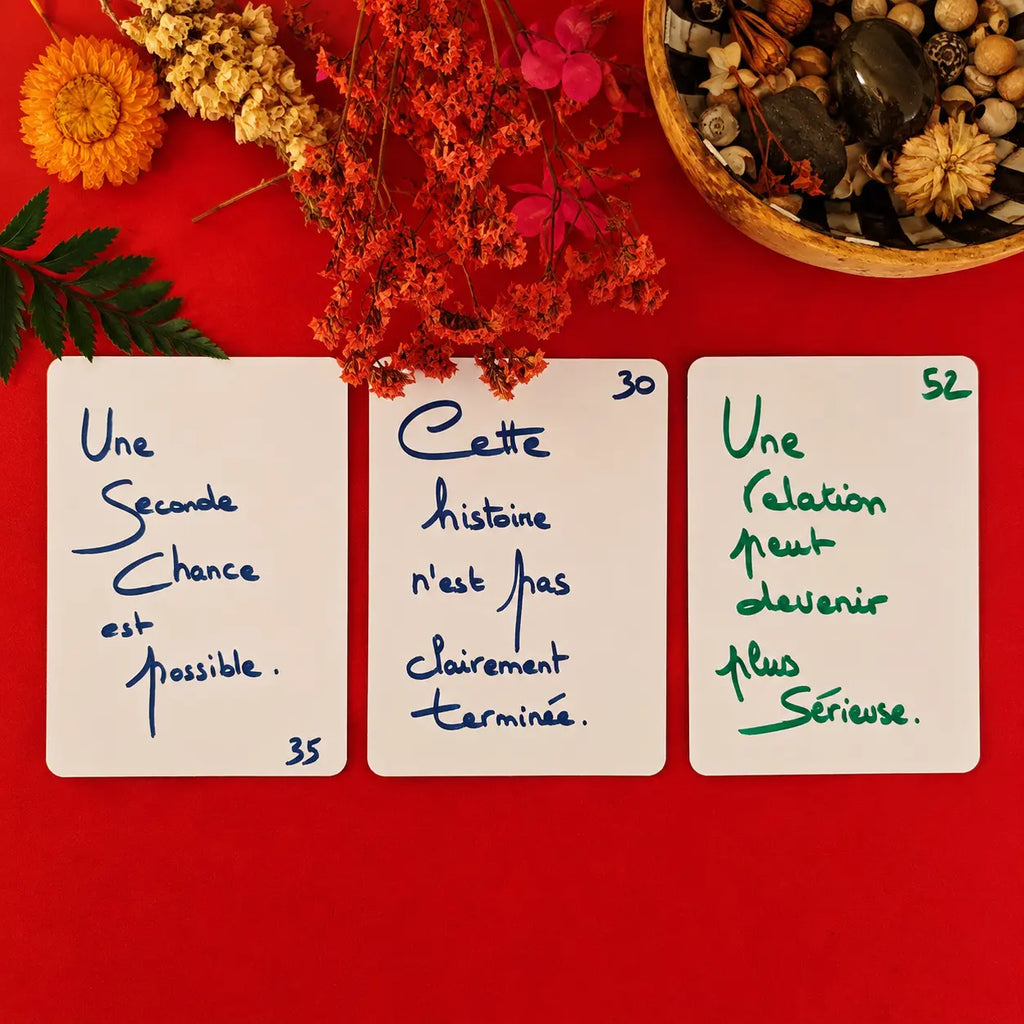 Une
Seconde
Chance
est
possible.
35
30
Cette
histoire
n'est pas
clairement
terminée.
52
Une
relation
peut
devenir
plus
Sérieuse.